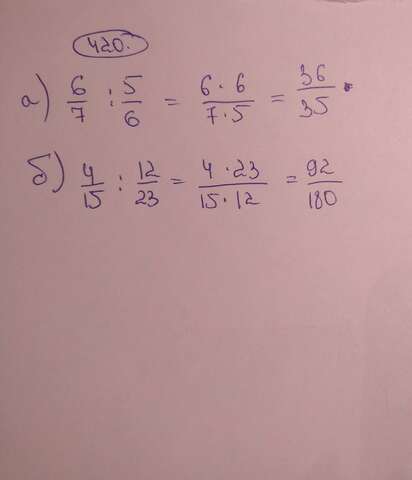 420.
а) 6/7 : 5/6 = 6·6/7·5 = 36/35.
б) 4/15 : 12/23 = 4·23/15·12 = 92/180